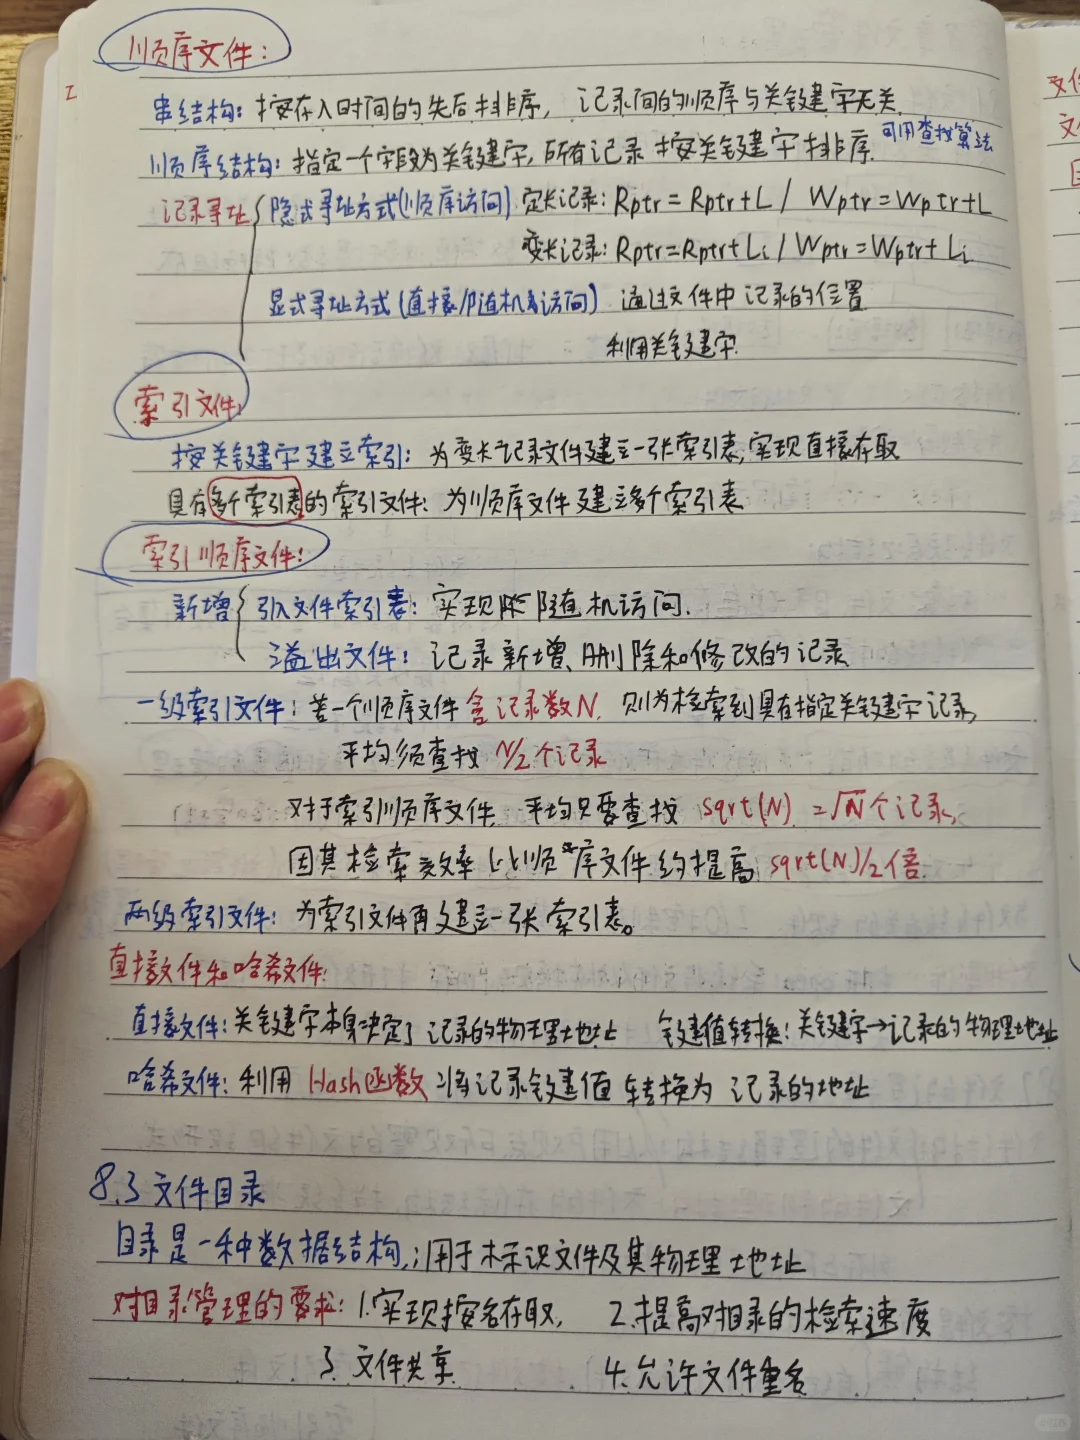 顺序文件:
I
串结构: 按存入时间的先后排序, 记录间的顺序与关键字无关.
可用查找算法
顺序结构: 指定一个字段为关键字, 所有记录按关键字排序.
记录寻址 { 隐式寻址方式(顺序访问) 定长记录: Rptr = Rptr+L / Wptr = Wptr+L
变长记录: Rptr=Rptr+Li / Wptr=Wptr+Li
显式寻址方式(直接/随机访问) 通过文件中记录的位置
利用关键字.
索引文件:
按关键字建立索引: 为变长记录文件建立一张索引表,实现直接存取
具有多个索引表的索引文件: 为顺序文件建立多个索引表
索引顺序文件:
新增 { 引入文件索引表: 实现随机访问.
溢出文件: 记录新增、删除和修改的记录
一级索引文件: 若一个顺序文件含记录数N. 则为检索到具有指定关键字记录,
平均须查找 N/2个记录
对于索引顺序文件, 平均只要查找 sqrt(N) =√N个记录,
因其检索效率比顺序文件约提高 sqrt(N)/2倍.
两级索引文件: 为索引文件再建立一张索引表。
直接文件和哈希文件:
直接文件: 关键字本身决定了记录的物理地址 键值转换: 关键字→记录的物理地址
哈希文件: 利用 Hash函数 将记录键值转换为 记录的地址
8.3 文件目录
目录是一种数据结构,;用于标识文件及其物理地址
对目录管理的要求: 1.实现按名存取, 2.提高对目录的检索速度
3. 文件共享 4.允许文件重名